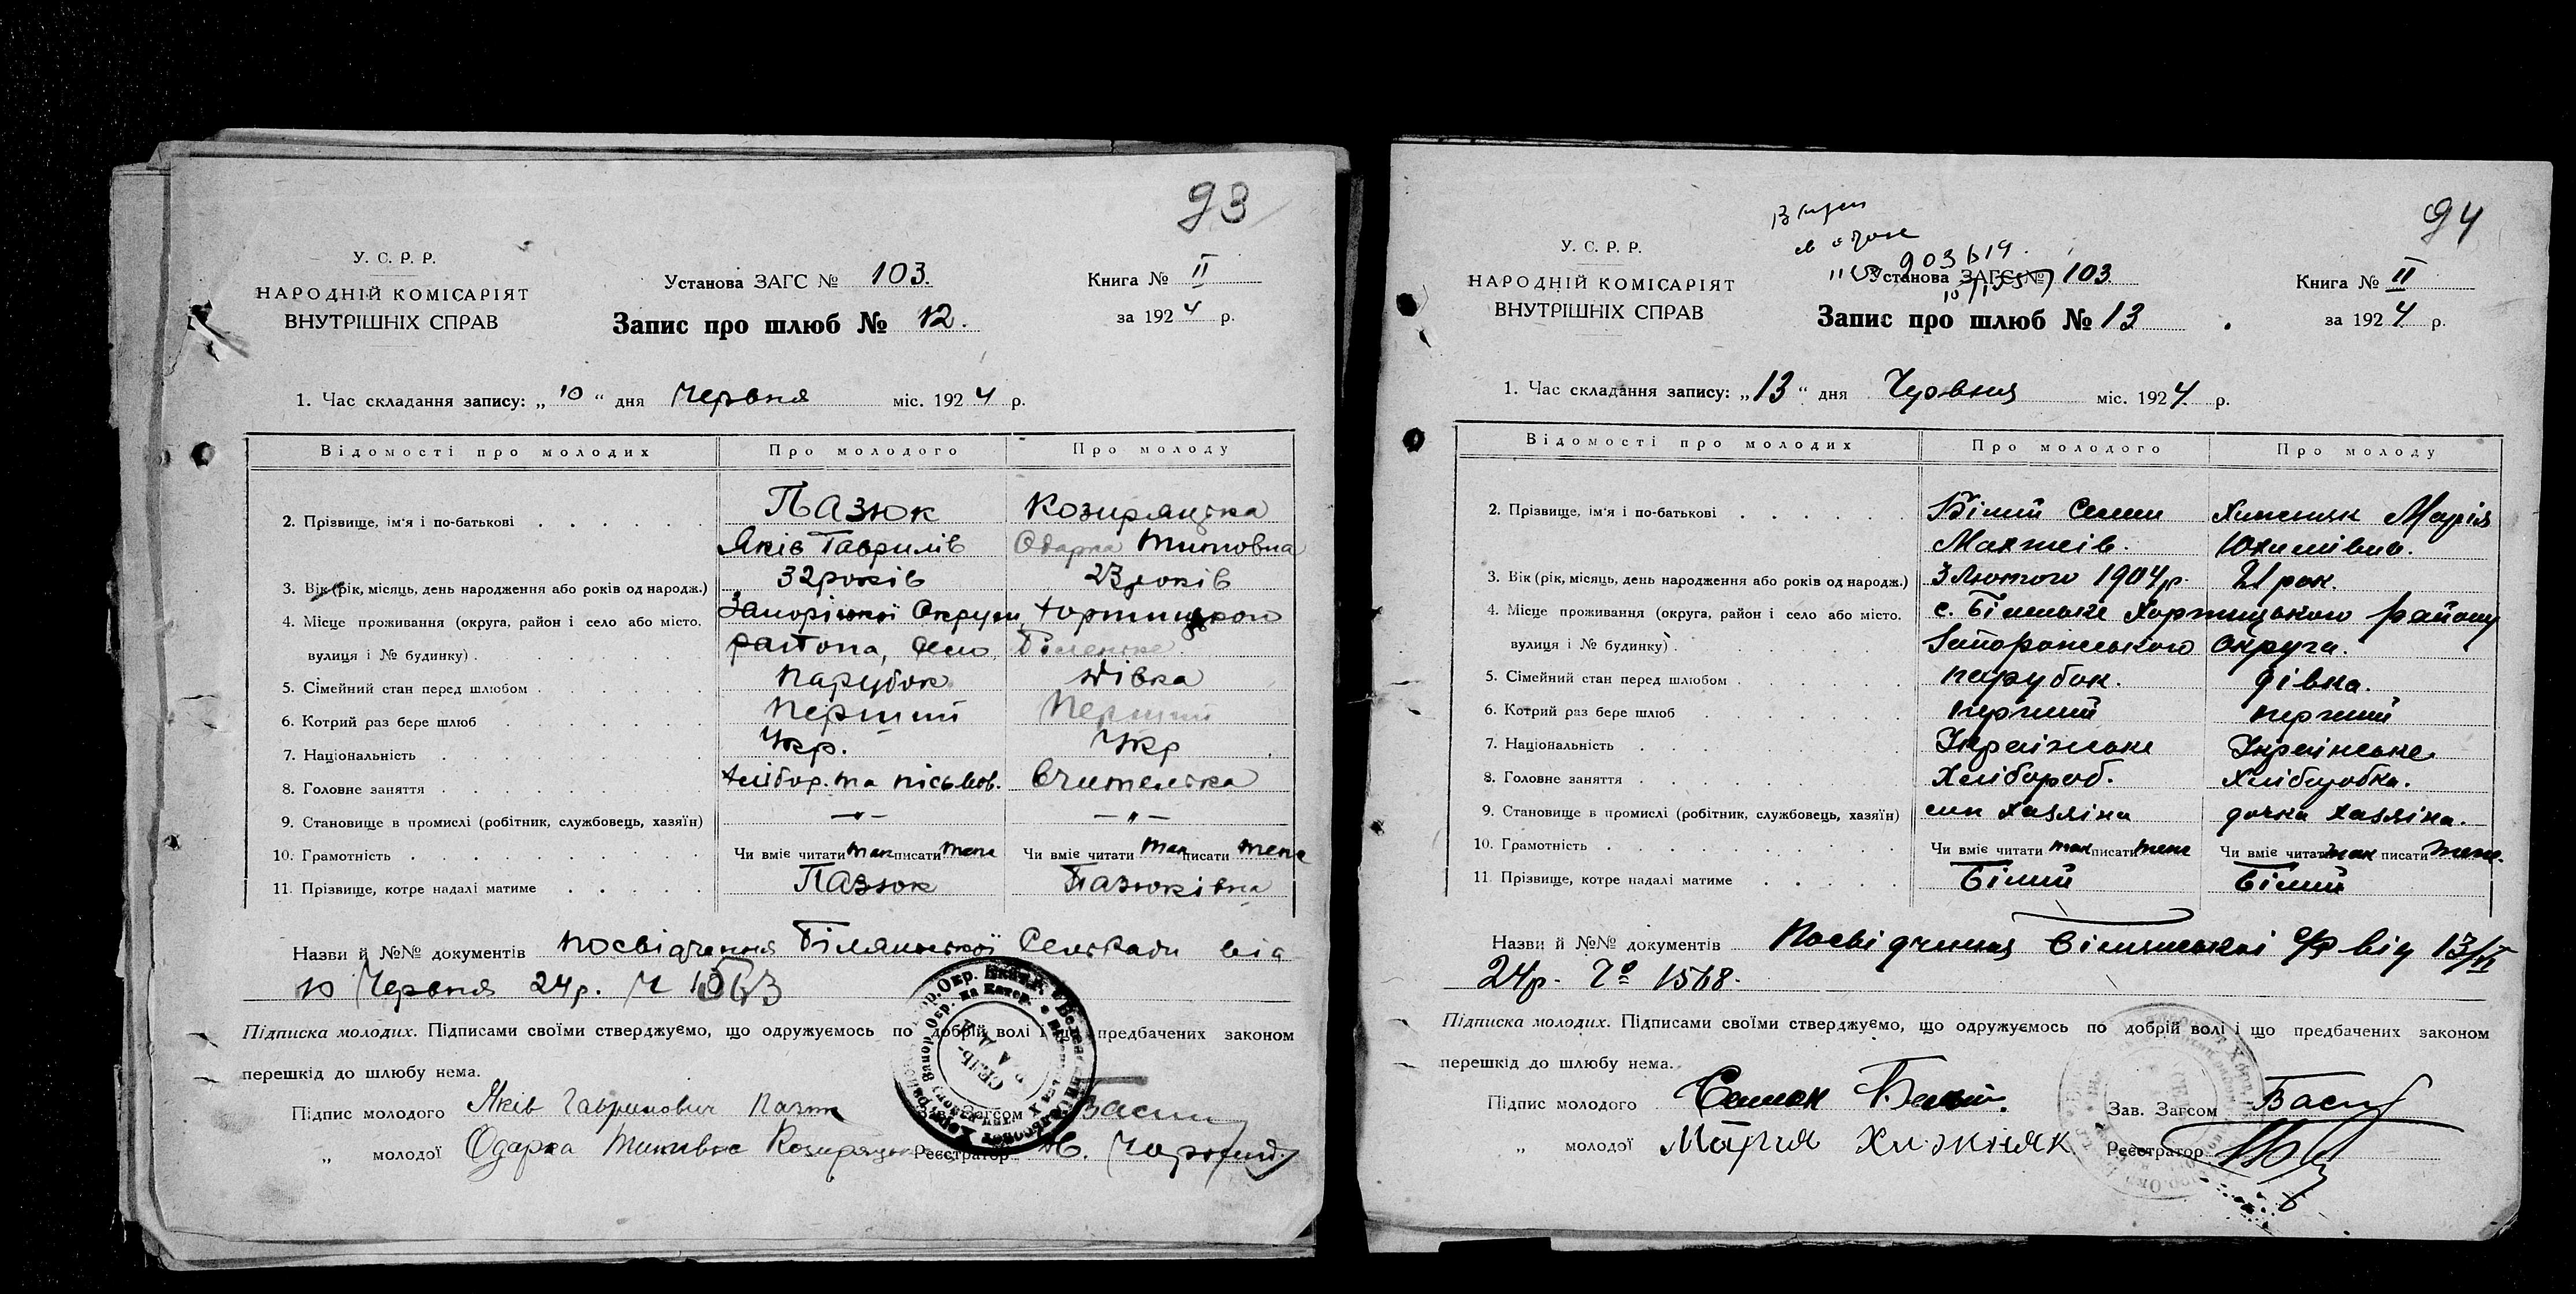 93
У. С. Р. Р.
НАРОДНІЙ КОМІСАРІЯТ
ВНУТРІШНІХ СПРАВ
Установа ЗАГС № 103.
Запис про шлюб № 12.
Книга № II
за 1924 р.
1. Час складання запису: „ 10 “ дня Червня міс. 1924 р.
Відомості про молодих Про молодого Про молоду
2. Прізвище, ім'я і по-батькові Пазюк Козиряцька
Яків Гаврилів Одарка Титовна
3. Вік (рік, місяць, день народження або років од народж.) 32 років 23 років
4. Місце проживання (округа, район і село або місто, Запоріжкої Округи, Хортицького
вулиця і № будинку) району, село Біленьке
5. Сімейний стан перед шлюбом парубок дівка
6. Котрий раз бере шлюб Перший Перший
7. Національність Укр. Укр
8. Головне заняття хлібор. та пісьмов. Вчителька
9. Становище в промислі (робітник, службовець, хазяїн) —„— —„—
10. Грамотність Чи вміє читати так писати теж Чи вміє читати так писати теж
11. Прізвище, котре надалі матиме Пазюк Пазюківна
Назви й №№ документів посвідчення Білянської Сельради від
10 Червня 24 р. Ч 1563
Підписка молодих. Підписами своїми стверджуємо, що одружуємось по добрій волі і що предбачених законом
перешкід до шлюбу нема.
Підпис молодого Яків Гаврилович Пазюк Зав. Загсом
„ молодої Одарка Титивна Козиряцька Реєстратор
94
У. С. Р. Р.
НАРОДНІЙ КОМІСАРІЯТ
ВНУТРІШНІХ СПРАВ
Установа ЗАГС № 103.
Запис про шлюб № 13
Книга № II
за 1924 р.
1. Час складання запису: „ 13 “ дня Червня міс. 1924 р.
Відомості про молодих Про молодого Про молоду
2. Прізвище, ім'я і по-батькові Білий Семен Хижняк Марія
Матвіїв. Юхимівна.
3. Вік (рік, місяць, день народження або років од народж.) 3 Лютого 1904 р. 21 рок.
4. Місце проживання (округа, район і село або місто, с. Біленьке Хортицького району
вулиця і № будинку) Запорожського Округа.
5. Сімейний стан перед шлюбом парубок. дівка.
6. Котрий раз бере шлюб перший перший
7. Національність Українське Українське
8. Головне заняття Хлібороб. Хліборобка.
9. Становище в промислі (робітник, службовець, хазяїн) син хазяіна дочка хазяіна.
10. Грамотність Чи вміє читати так писати теж Чи вміє читати так писати теж.
11. Прізвище, котре надалі матиме Білий Білий
Назви й №№ документів Посвідчення Білянської с/р від 13/VI
24р. 1568.
Підписка молодих. Підписами своїми стверджуємо, що одружуємось по добрій волі і що предбачених законом
перешкід до шлюбу нема.
Підпис молодого Семен Білий. Зав. Загсом
„ молодої Мария Хижняк Реєстратор